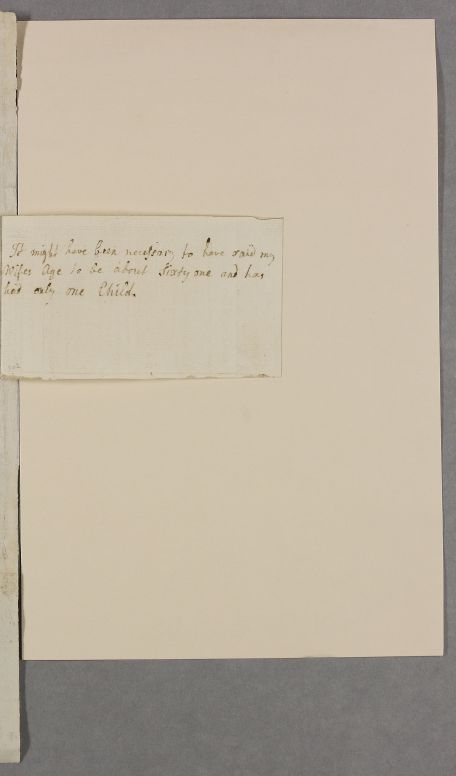 It might have been necessary to have said my
Wifes Age to be about Sixty one and has
had only one Child.